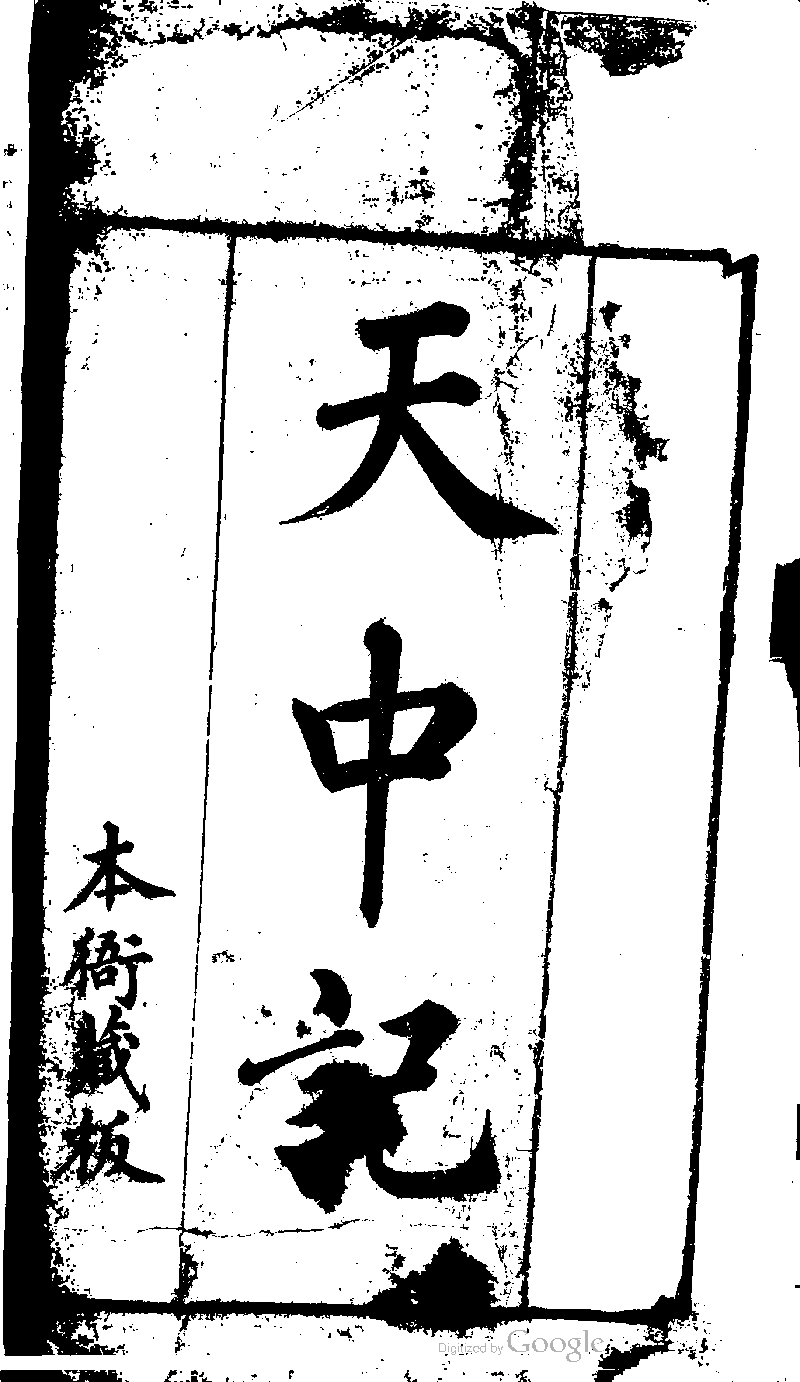 天中記
本衙藏板
Digitized by Google